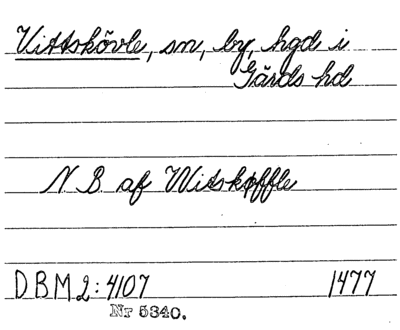 Vittskövle, sn, by, hgd i
Gärds hd
N. B. af Witskøffle
DBM 2:4107 1477
Nr 5340.